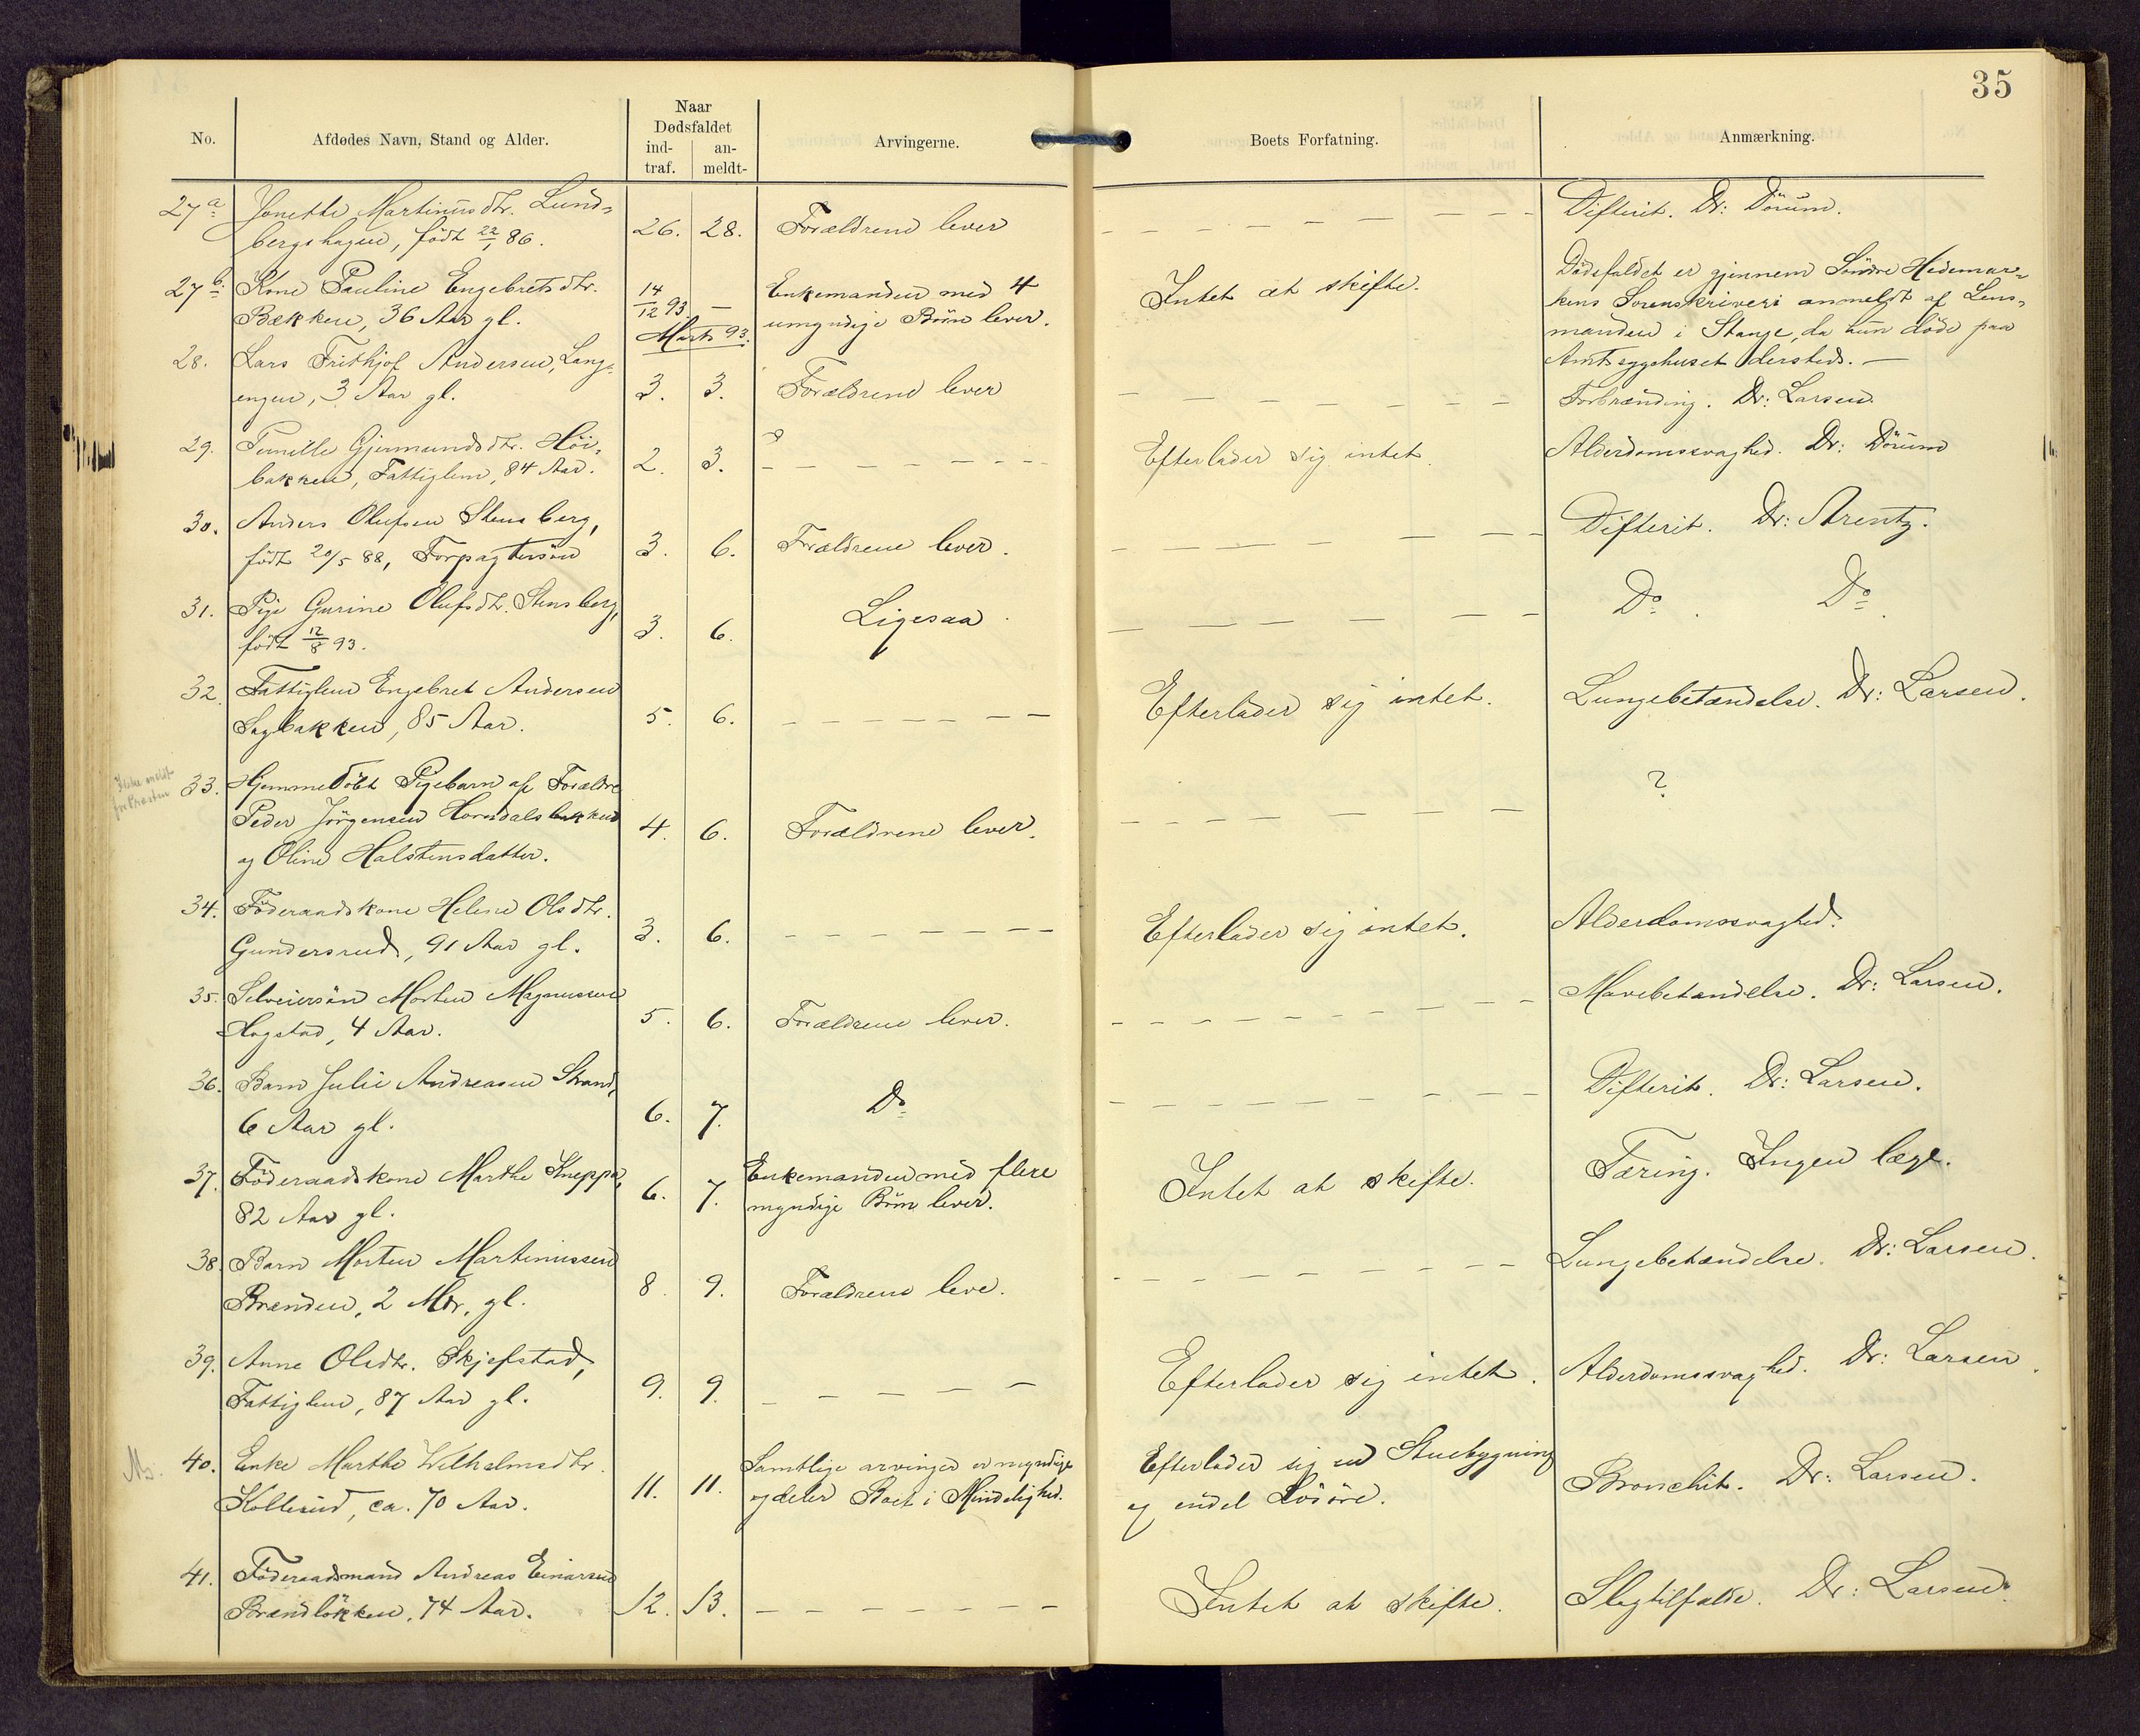 35
No. Afdødes Navn, Stand og Alder. Naar Dødsfaldet Arvingerne. Boets Forfatning. Anmærkning.
ind- an-
traf. meldt-
27a Jonette Martinusdtr. Lund- 26. 28. Forældrene lever Difterit. Dr: Dörum.
bergshagen, født 22/1 86.
27b. Kone Pauline Engebretsdtr. 14/12 93. — Enkemanden med 4 Intet at skifte. Dödsfaldet er gjennem Söndre Hedemar-
Bækken, 36 Aar gl. umyndige Börn lever. kens Sorenskriveri anmeldt af Lens-
Marts 93. manden i Stange, da hun döde paa
Amtsygehuset dersteds. —
28. Lars Frithjof Andersen, Lang-
engen, 3 Aar gl. 3. 3. Forældrene lever Forbrænding. Dr: Larsen.
29. Pernille Gjermundsdtr. Höi- 2. 3. Efterlader sig intet. Alderdomssvaghed. Dr: Dörum
bakken, Fattiglem, 84 Aar.
30. Anders Olufsen Stensberg, 3. 6. Forældrene lever. Difterit. Dr: Arentz.
født 20/5 88, Forpagtersön
31. Pige Gurine Olufsdtr. Stensberg, 3. 6. Ligesaa Do. Do.
født 12/8 93.
32. Fattiglem Engebret Andersen
Sagbakken, 85 Aar. 5. 6. Efterlader sig intet. Lungebetændelse. Dr: Larsen.
Ikke meldt
for Præsten
33. Hjemmedöbt Pigebarn af Forældre ?
Peder Jörgensen Horndalsbakken 4. 6. Forældrene lever.
og Oline Halstensdatter.
34. Föderaadskone Helene Olsdtr. 3. 6. Efterlader sig intet. Alderdomssvaghed.
Gundersrud, 91 Aar gl.
35. Selveiersön Morten Magnussen 5. 6. Forældrene lever. Mavebetændelse. Dr: Larsen.
Hogstad, 4 Aar.
36. Barn Julie Andreasen Strand, 6. 7. Do Difterit. Dr: Larsen.
6 Aar gl.
37. Föderaadskone Marthe Kneppe, 6. 7. Enkemanden med flere Intet at skifte. Tæring. Ingen læge.
82 Aar gl. myndige Börn lever.
38. Barn Morten Martinussen 8. 9. Forældrene leve. Lungebetændelse. Dr: Larsen.
Brænden, 2 Mdr. gl.
39. Anne Olsdtr. Skjefstad, 9. 9. Efterlader sig intet. Alderdomssvaghed. Dr: Larsen.
Fattiglem, 87 Aar gl.
40. Enke Marthe Wilhelmsdtr. 11. 11. Samtlige arvinger er myndige Efterlader sig en Stuebygning Bronchit. Dr: Larsen.
Kollerud, ca. 70 Aar. og deler Boet i Mindelighed. og endel Lösöre.
41. Föderaadsmand Andreas Einarsen 12. 13. Intet at skifte. Slagtilfælde. Dr: Larsen.
Brændlökken, 74 Aar.